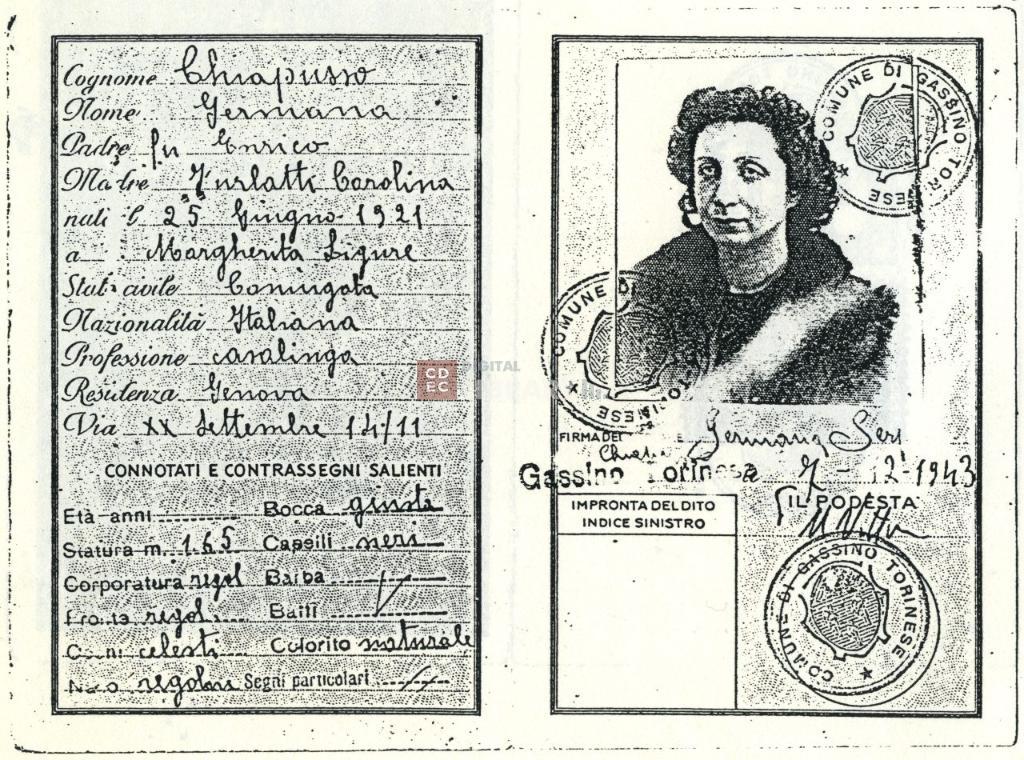 Cognome Chiapusso
Nome Germana
Padre fu Enrico
Madre Turlatti Carolina
nata il 25 Giugno 1921
a Margherita Ligure
Stato civile Coniugata
Nazionalità Italiana
Professione casalinga
Residenza Genova
Via XX Settembre 14/11
CONNOTATI E CONTRASSEGNI SALIENTI
Età anni
Bocca giusta
Statura m. 1.65 Capelli neri
Corporatura regol Barba
Fronte regol. Baffi
celesti Colorito naturale
Naso regolare Segni particolari
CDEC DIGITAL
COMUNE DI GASSINO TORINESE
COMUNE DI TORINESE
FIRMA DEL Germana
Gassino Torinese 7-12-1943
IMPRONTA DEL DITO
INDICE SINISTRO
IL PODESTA
COMUNE DI GASSINO TORINESE